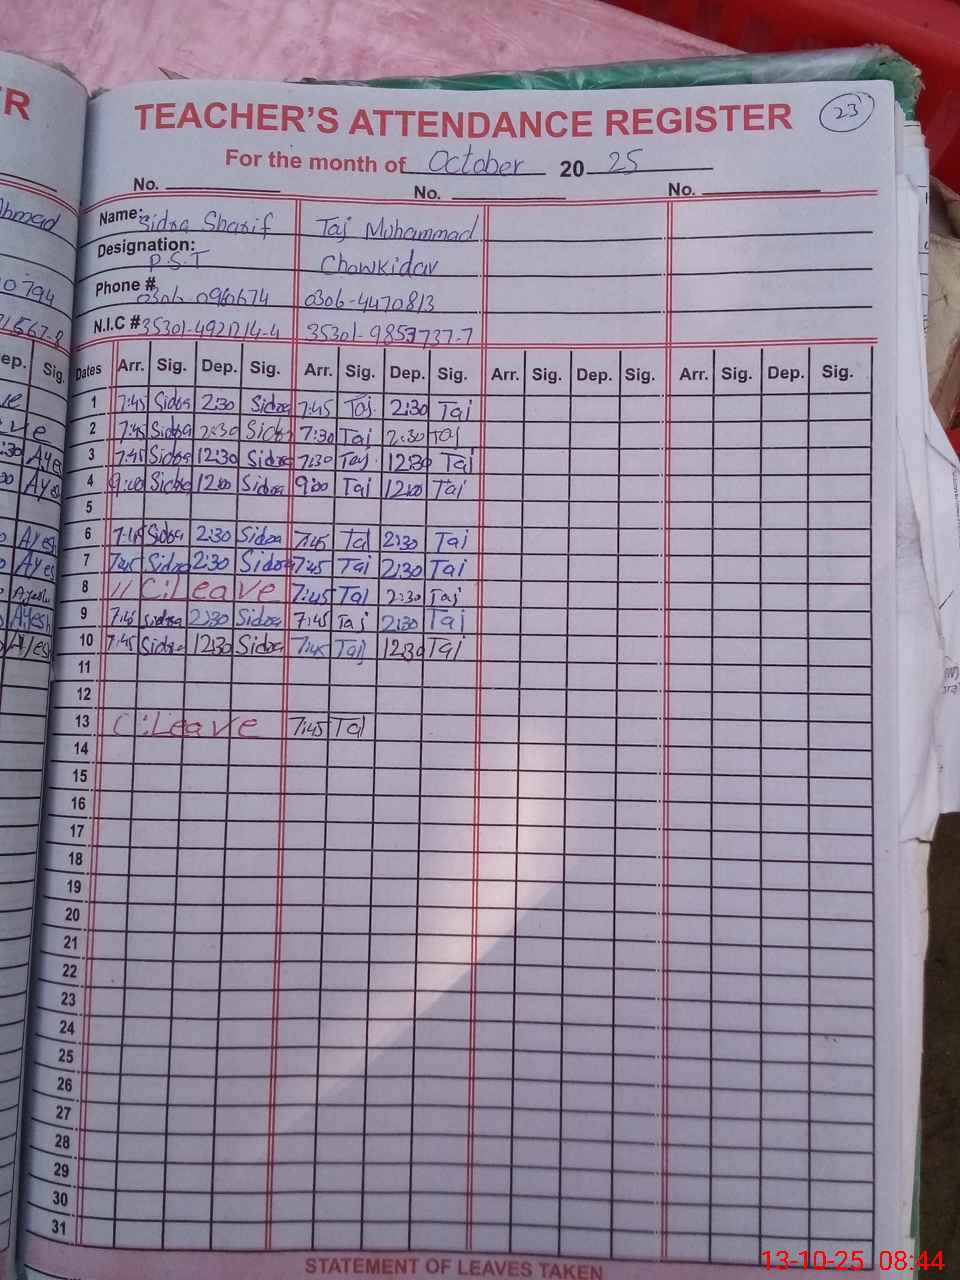 TEACHER'S ATTENDANCE REGISTER 23
For the month of October 2025
No. No. No.
Name: Sidra Sharif Taj Muhammad
Designation: P.S.T Chowkidar
Phone # 0306-4470813
N.I.C #
Dates Arr. Sig. Dep. Sig. Arr. Sig. Dep. Sig. Arr. Sig. Dep. Sig. Arr. Sig. Dep. Sig.
1 7:45 Sidra 2:30 Sidra 7:45 Taj 2:30 Taj
2 7:45 Sidra 2:30 Sidra 7:30 Taj 2:30 Taj
3 7:45 Sidra 12:30 Sidra 7:30 Taj 12:30 Taj
4 9:00 Sidra 12:00 Sidra 9:00 Taj 12:00 Taj
5
6 7:45 Sidra 2:30 Sidra 7:45 Taj 2:30 Taj
7 7:45 Sidra 2:30 Sidra 7:45 Taj 2:30 Taj
8 // C:Leave 7:45 Taj 2:30 Taj
9 7:45 Sidra 2:30 Sidra 7:45 Taj 2:30 Taj
10 7:45 Sidra 12:30 Sidra 7:45 Taj 12:30 Taj
11
12
13 C:Leave 7:45 Taj
14
15
16
17
18
19
20
21
22
23
24
25
26
27
28
29
30
31
STATEMENT OF LEAVES TAKEN
13-10-25 08:44